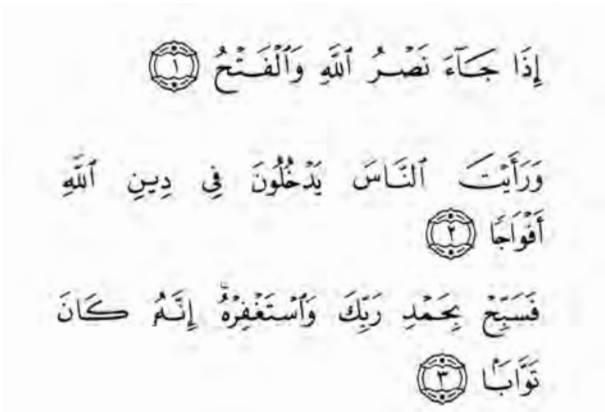 إِذَا جَآءَ نَصۡرُ ٱللَّهِ وَٱلۡفَتۡحُ ١
وَرَأَيۡتَ ٱلنَّاسَ يَدۡخُلُونَ فِي دِينِ ٱللَّهِ
أَفۡوَاجٗا ٢
فَسَبِّحۡ بِحَمۡدِ رَبِّكَ وَٱسۡتَغۡفِرۡهُۚ إِنَّهُۥ كَانَ
تَوَّابَۢا ٣